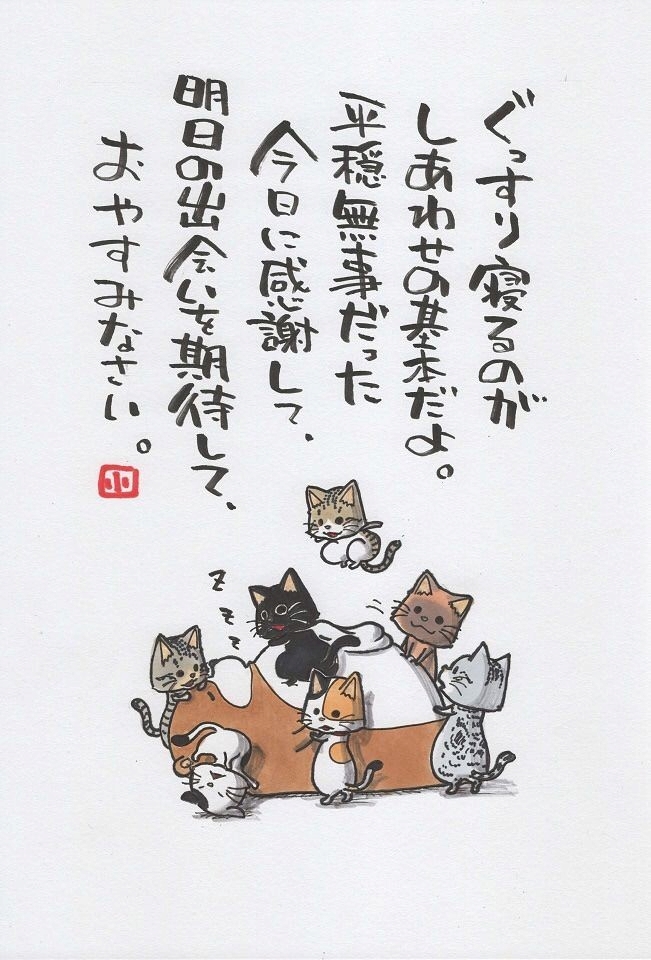 ぐっすり寝るのが
しあわせの基本だよ。
平穏無事だった
今日に感謝して、
明日の出会いを期待して、
おやすみなさい。
小
z z z z